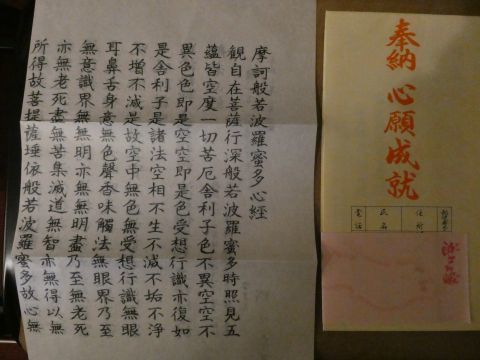 摩訶般若波羅蜜多心經
觀自在菩薩行深般若波羅蜜多時照見五
蘊皆空度一切苦厄舍利子色不異空空不
異色色即是空空即是色受想行識亦復如
是舍利子是諸法空相不生不滅不垢不淨
不增不減是故空中無色無受想行識無眼
耳鼻舌身意無色聲香味觸法無眼界乃至
無意識界無無明亦無無明盡乃至無老死
亦無老死盡無苦集滅道無智亦無得以無
所得故菩提薩埵依般若波羅蜜多故心無
奉納 心願成就
住所
氏名
電話